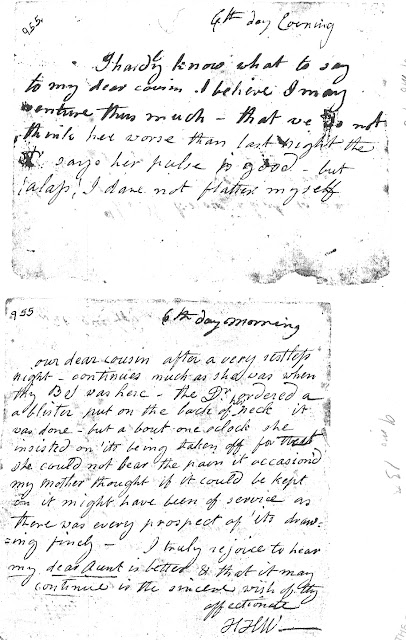 955
6th day Evening
I hardly know what to say
to my dear cousin. I believe I may
venture thus much - that we do not
think her worse than last night the
Dr says her pulse is good - but
alass, I dare not flatter myself
955
6th day morning
our dear cousin after a very restless
night - continues much as she was when
thy Bel was here - the Dr ordered a
a blister put on the back of her neck it
was done - but a bout one oclock she
insisted on 'its being taken off for
she could not bear the pain it occasiond
my mother thought if it could be kept
on it might have been of service as
there was every prospect of 'its draw-
=ing finely - I truly rejoice to hear
my dear Aunt is better & that it may
continue is the sincere wish of thy
affectionate
HHW